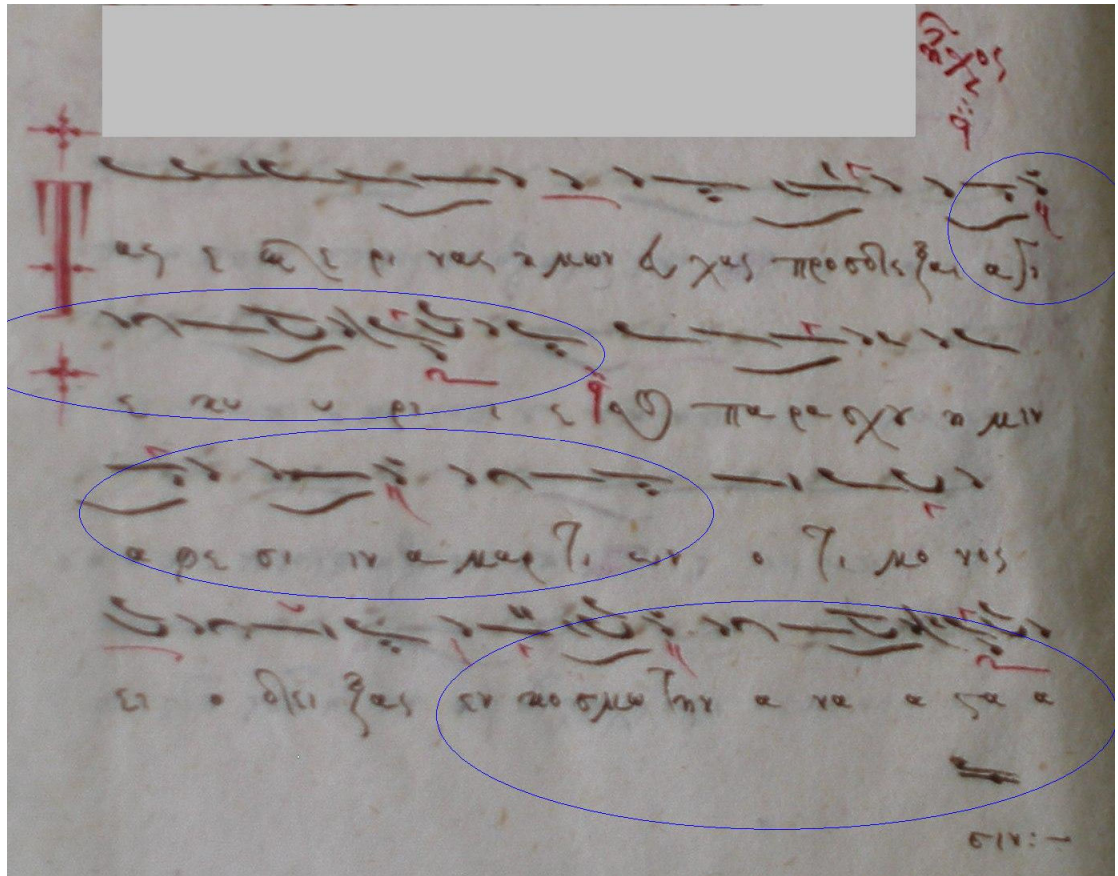 ἦχος
α
Τας ε σπε ρι νας η μων ευ χας προσδεξαι α γι
ε κυ υ ρι ι ε και πα ρα σχου η μιν
α φε σι ιν α μαρ τι ων ο τι μο νος
ει ο δει ξας εν κοσμω την α να α στα α
σιν:-